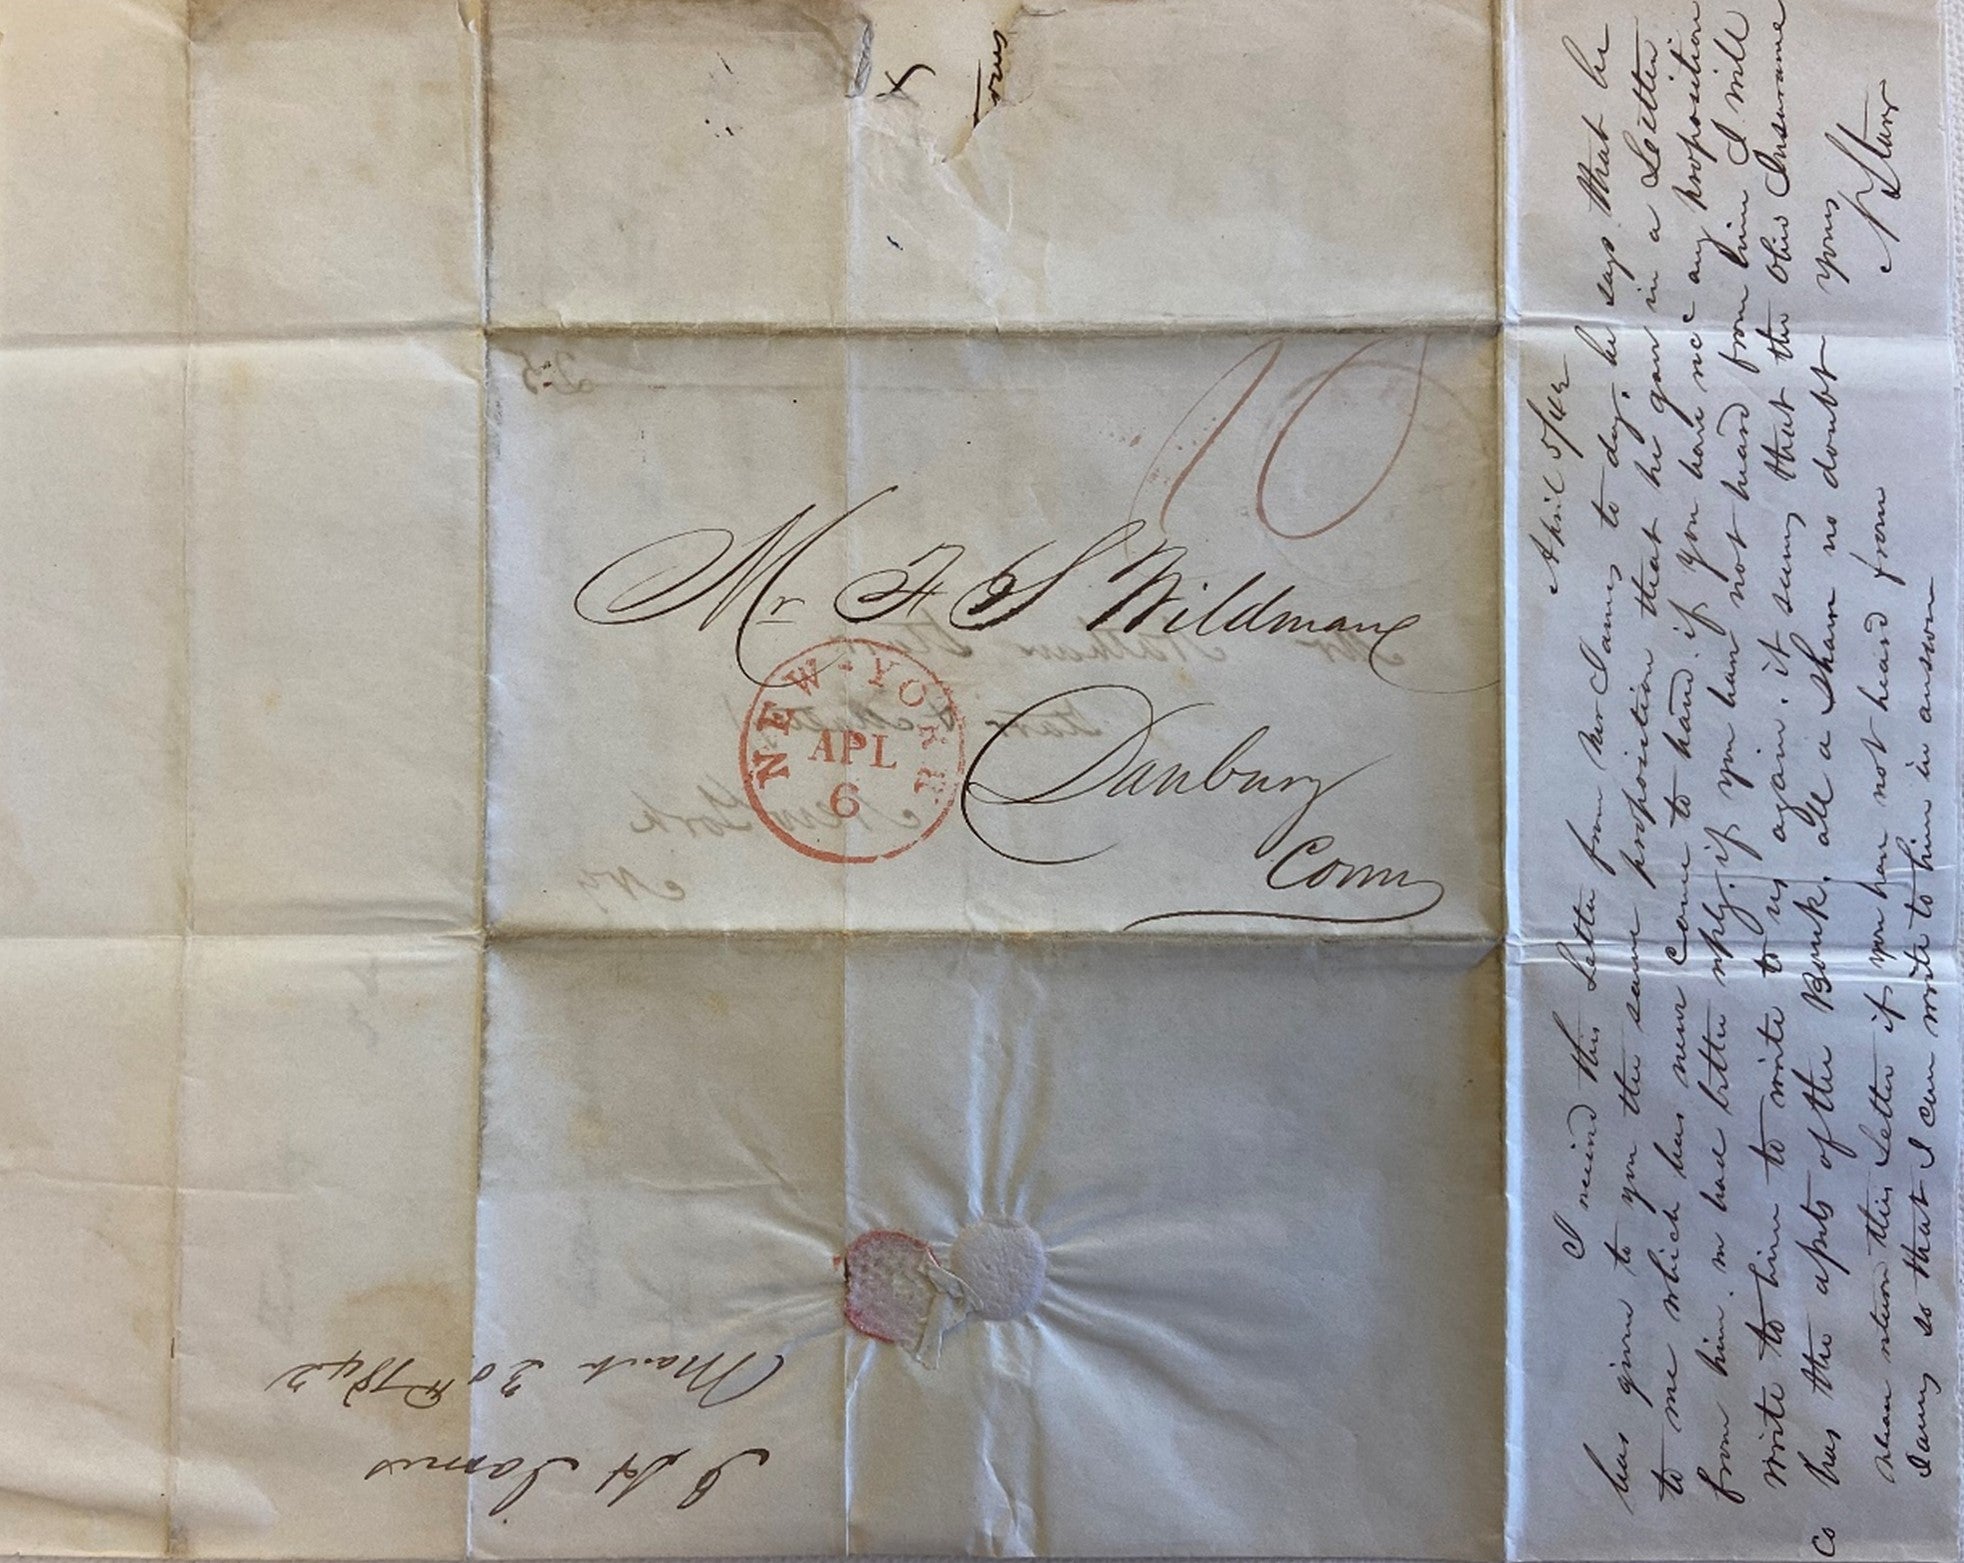 Mr F S Wildman
Danbury
Conn
NEW-YORK
APL
6
10
April 5/42
I received this Letter from Mr James to day. he says that he
has given to you the same proposition that he gave in a Letter
to me which has never come to hand. if you have rec'd any proposition
from him. had better reply. if you have not heard from him I will
write to him to write to us again. it seems that the Ohio Insurance
Co has the assets of the Bank, all a sham no doubt yours
N Starr
return this Letter if you have not heard from
James so that I can write to him in answer
J H James
March 30th 1842
Mr Nathan Starr
New York
NY